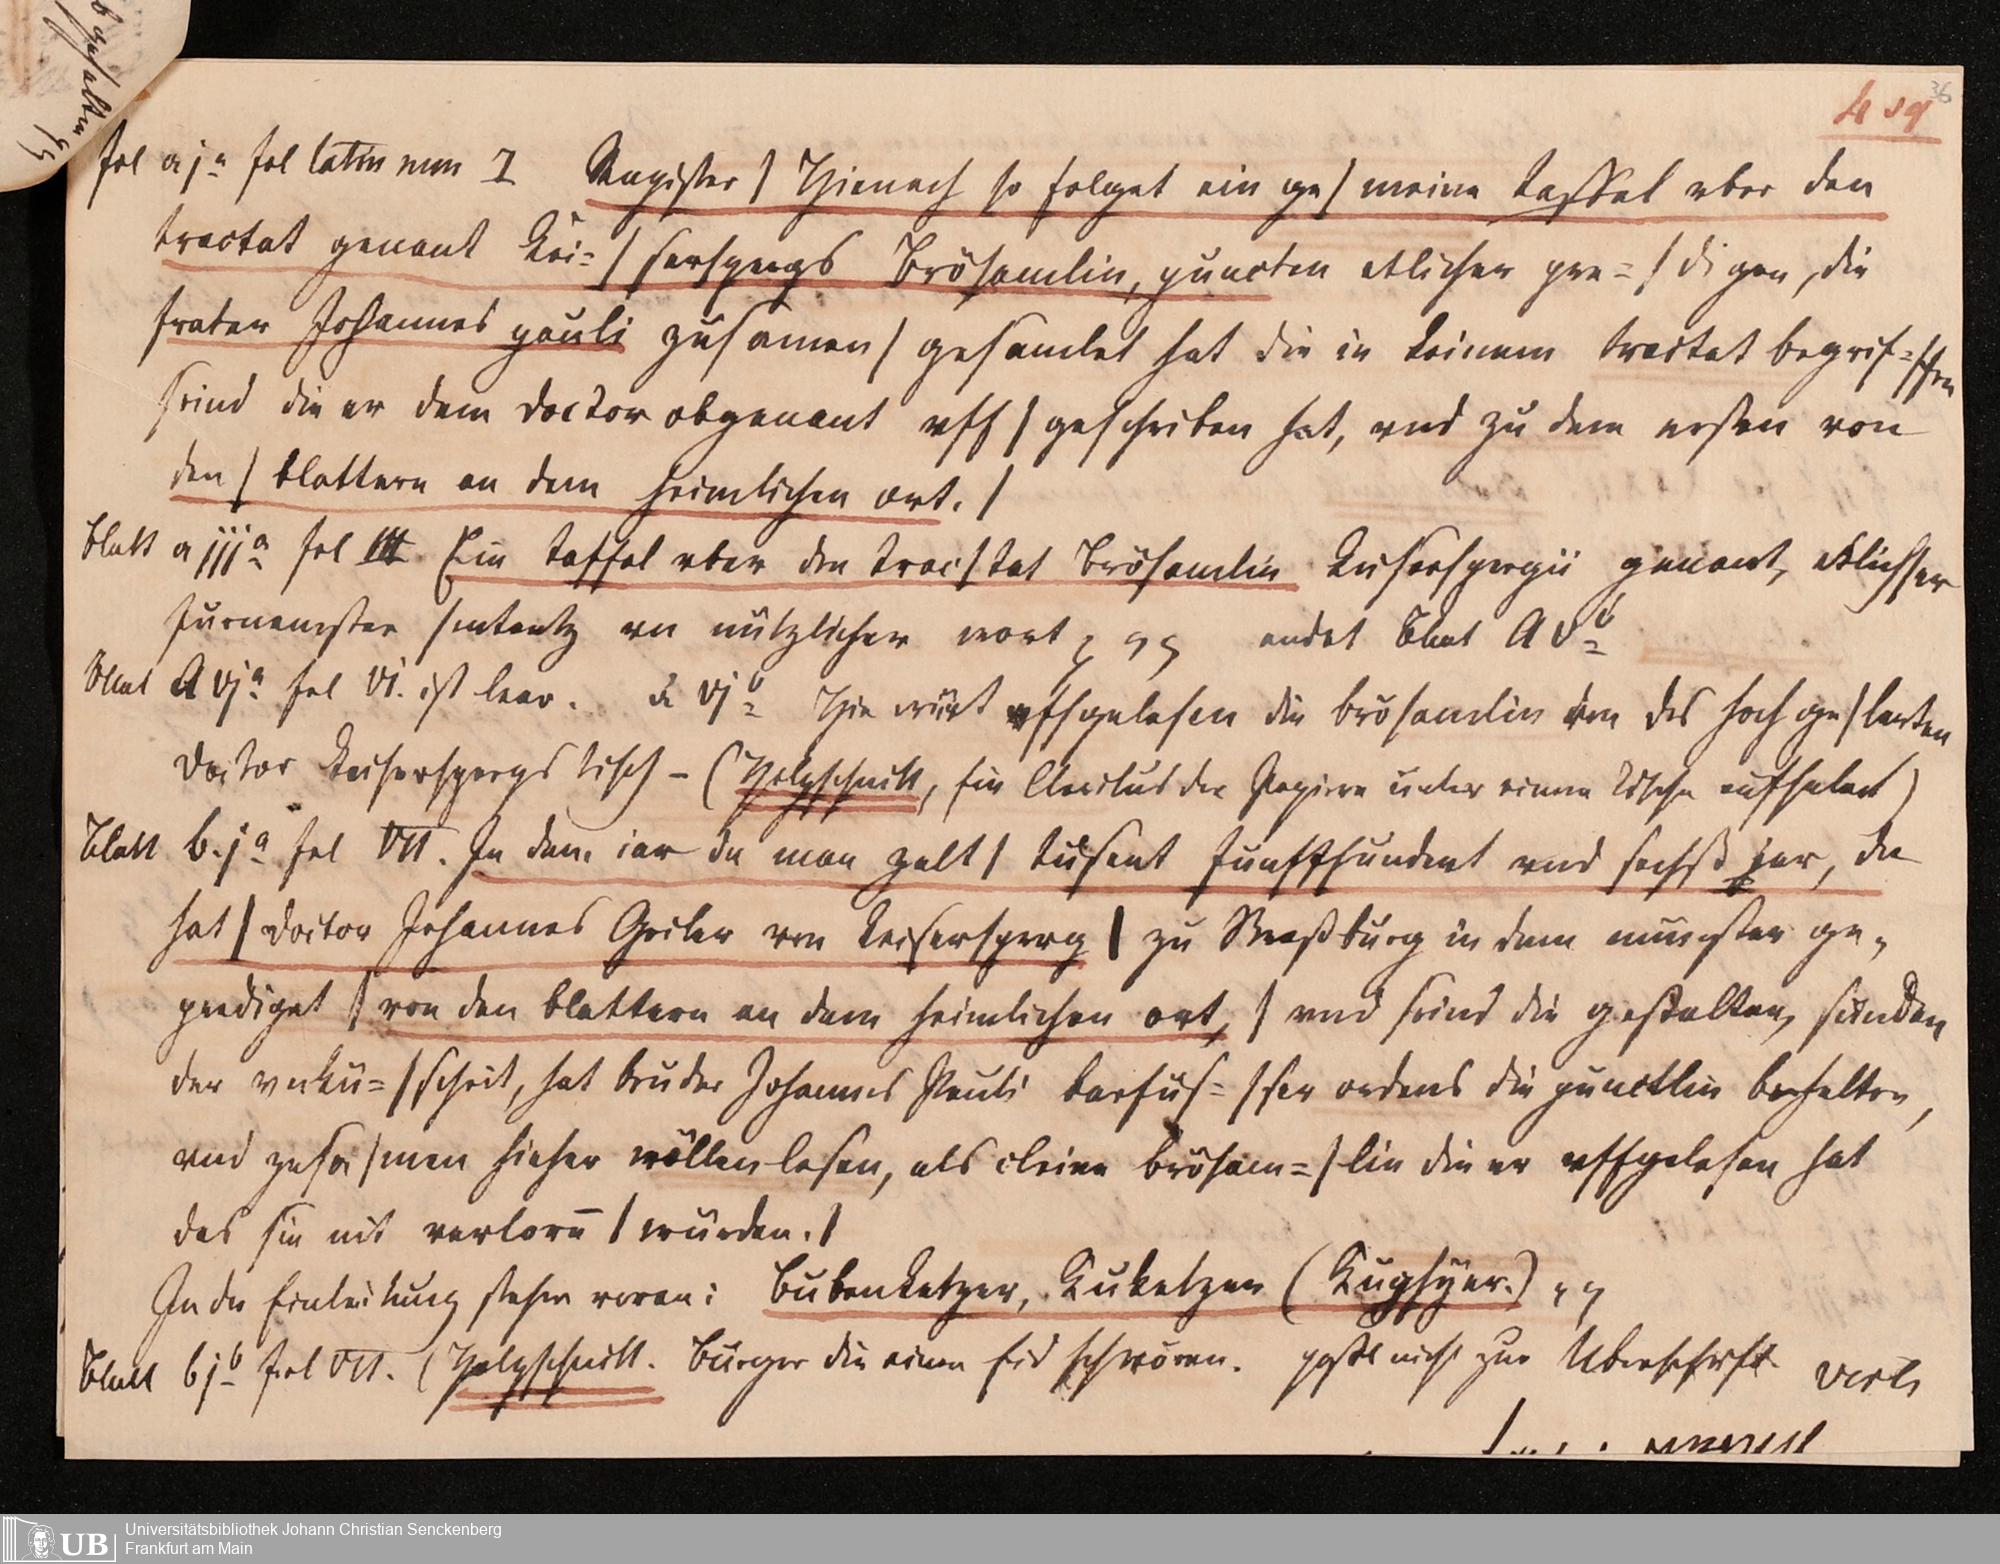 36
fol a jᵃ fol latin num I Register / Hienach so folget ein ge / meine taffel vber den
tractat genant Kei= / serspergs Brösamlin, puncten etlicher pre= / digen, die
frater Johannes pauli zusamen / gesamlet hat die in keinem tractat begrif= / fen
seind die er dem doctor obgenant vff / geschriben hat, vnd zu dem ersten von
den / blattern an dem heimlichen ort. /
Blatt a iijᵃ fol III Ein taffel vber den trac / tat Brösamlin Keiserspergii genant, etlicher
furnemster sententz vn nützlicher wort endet Blat A vᵇ
Blat A vjᵃ fol VI. ist leer. a vjᵇ Hie würt vffgelesen die brosamlin von des hoch ge / lerten
doctor Keiserspergs tisch – (Holzschnitt, ein die Papiere unter einem Tische aufhebt)
Blatt b. jᵃ fol VII. In dem iar da man zalt / tusent funffhundert vnd sechß jar, da
hat / doctor Johannes Geiler von Keisersperg / zu Straßburg in dem munster ge=
prediget / von den blattern an dem heimlichen ort, / vnd seind die gestalten, sünden
der vnkü= / scheit, hat bruder Johannes Pauli barfus= / ser ordens die punctlin behalten,
vnd zesa / men hieher wöllen lesen, als cleine brösam= / lin die er vffgelesen hat
das sie nit verlorn̄ / würden. /
In der Einleitung stehen voran: Bubenketzer, Kuketzer (Kughyer.)
Blatt b jᵇ fol VII. (Holzschnitt. Bürger die einen Eid schwören. paßt nicht zur Uberschrift
Universitätsbibliothek Johann Christian Senckenberg
UB Frankfurt am Main